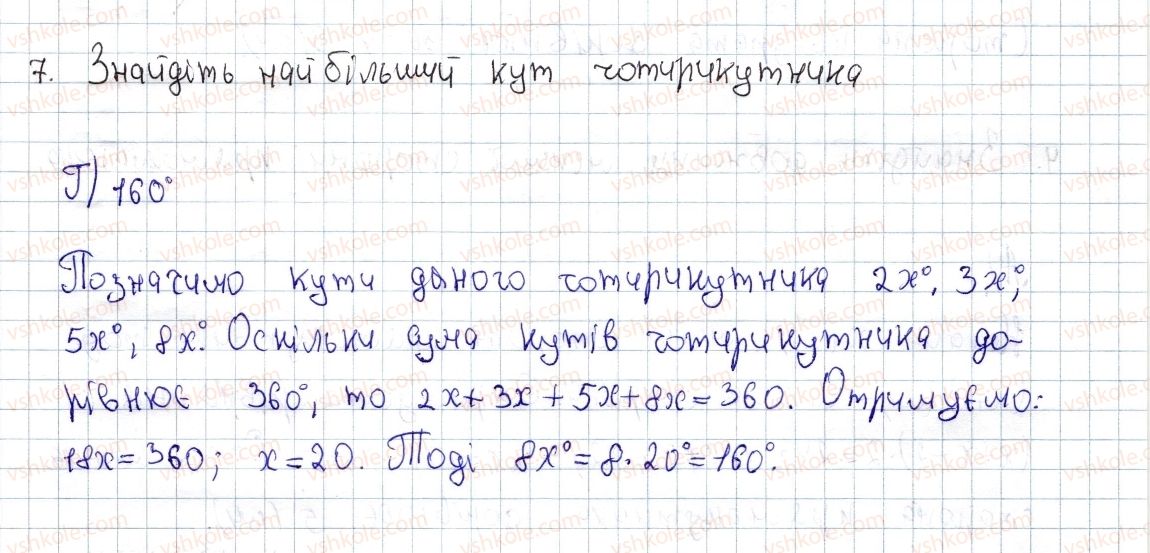 7. Знайдіть найбільший кут чотирикутника
Г) 160°
Позначимо кути даного чотирикутника 2x°, 3x°,
5x°, 8x°. Оскільки сума кутів чотирикутника до-
рівнює 360°, то 2x+3x+5x+8x=360. Отримуємо:
18x=360; x=20. Тоді 8x°=8·20°=160°.